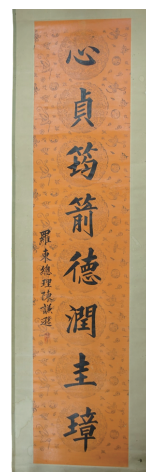 心貞筠箭德潤圭璋
羅東總理陳謨選